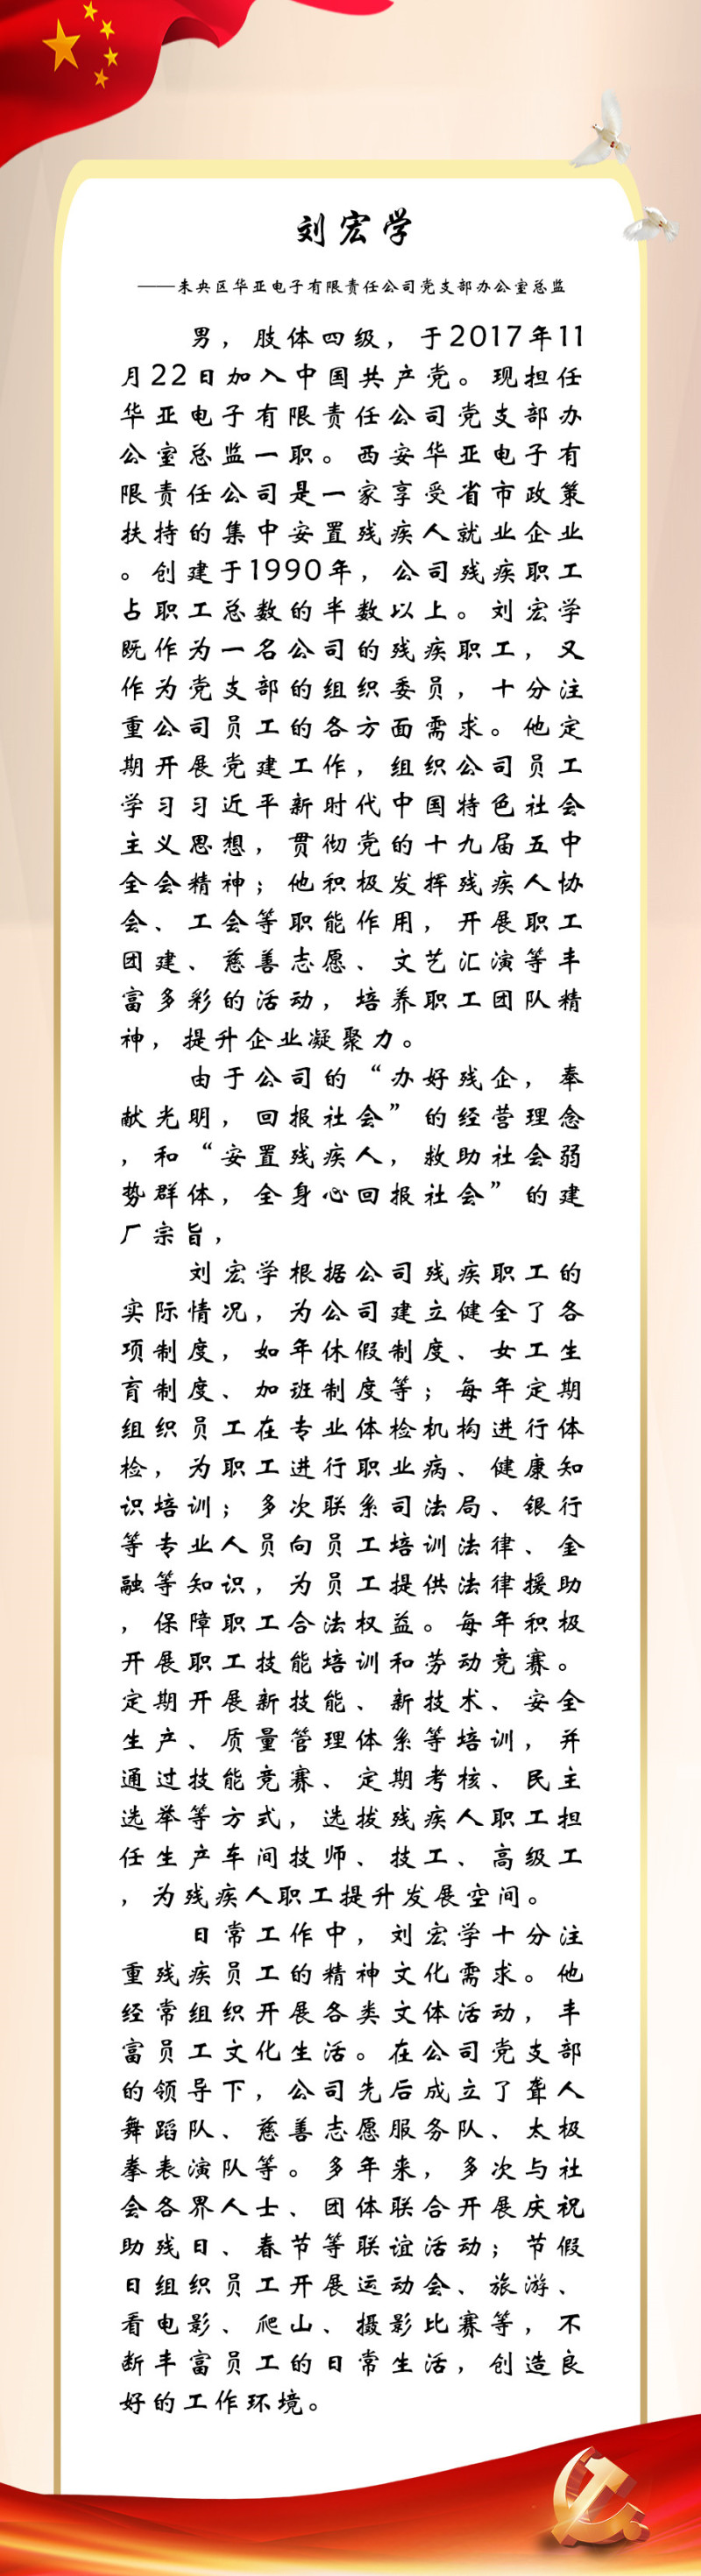 刘宏学
——未央区华亚电子有限责任公司党支部办公室总监
男，肢体四级，于2017年11
月22日加入中国共产党。现担任
华亚电子有限责任公司党支部办
公室总监一职。西安华亚电子有
限责任公司是一家享受省市政策
扶持的集中安置残疾人就业企业
。创建于1990年，公司残疾职工
占职工总数的半数以上。刘宏学
既作为一名公司的残疾职工，又
作为党支部的组织委员，十分注
重公司员工的各方面需求。他定
期开展党建工作，组织公司员工
学习习近平新时代中国特色社会
主义思想，贯彻党的十九届五中
全会精神；他积极发挥残疾人协
会、工会等职能作用，开展职工
团建、慈善志愿、文艺汇演等丰
富多彩的活动，培养职工团队精
神，提升企业凝聚力。
由于公司的“办好残企，奉
献光明，回报社会”的经营理念
，和“安置残疾人，救助社会弱
势群体，全身心回报社会”的建
厂宗旨，
刘宏学根据公司残疾职工的
实际情况，为公司建立健全了各
项制度，如年休假制度、女工生
育制度、加班制度等；每年定期
组织员工在专业体检机构进行体
检，为职工进行职业病、健康知
识培训；多次联系司法局、银行
等专业人员向员工培训法律、金
融等知识，为员工提供法律援助
，保障职工合法权益。每年积极
开展职工技能培训和劳动竞赛。
定期开展新技能、新技术、安全
生产、质量管理体系等培训，并
通过技能竞赛、定期考核、民主
选举等方式，选拔残疾人职工担
任生产车间技师、技工、高级工
，为残疾人职工提升发展空间。
日常工作中，刘宏学十分注
重残疾员工的精神文化需求。他
经常组织开展各类文体活动，丰
富员工文化生活。在公司党支部
的领导下，公司先后成立了聋人
舞蹈队、慈善志愿服务队、太极
拳表演队等。多年来，多次与社
会各界人士、团体联合开展庆祝
助残日、春节等联谊活动；节假
日组织员工开展运动会、旅游、
看电影、爬山、摄影比赛等，不
断丰富员工的日常生活，创造良
好的工作环境。